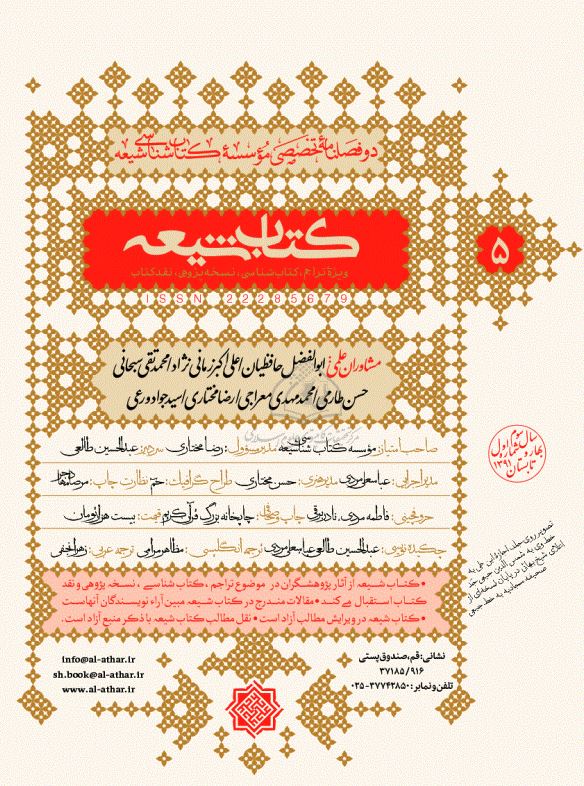 دو فصلنامهٔ تخصصی مؤسسهٔ کتابشناسی شیعه
کتاب شیعه
ویژهٔ تراجم، کتاب‌شناسی، نسخه‌پژوهی، نقد کتاب
ISSN 22285679
۵
مشاوران علمی: ابوالفضل حافظیان/علی‌اکبر زمانی‌نژاد/محمدتقی سبحانی
حسن طارمی/محمدمهدی معراجی/رضا مختاری/سید جواد ورعی
صاحب امتیاز: مؤسسه کتاب‌شناسی شیعه مدیر مسؤول: رضا مختاری سردبیر: عبدالحسین طالعی
مدیر اجرایی: عباسعلی مردی مدیر هنری: حسن مختاری طراح گرافیک: حمّ نظارت چاپ:
حروفچینی: فاطمه مردی، نادر برقی چاپ و صحافی: چاپخانه بزرگ قرآن کریم قیمت: بیست هزار تومان
چکیده نویسی: عبدالحسین طالعی، عباسعلی مردی ترجمه انگلیسی: مظاهر مرامی ترجمه عربی: زهرا نجفی
سال سوم
شمارهٔ اول
بهار و
تابستان
۱۳۹۱
تصویر روی جلد: اجازهٔ ابن خلّ به
خط وی به شمس‌الدین جبعی جدّ
اعلای شیخ بهائی در پایان نسخه‌ای از
صحیفه سجادیه به خط جبعی
• کتاب شیعه از آثار پژوهشگران در موضوع تراجم، کتاب‌شناسی، نسخه پژوهی و نقد
کتاب استقبال می‌کند • مقالات مندرج در کتاب شیعه مبین آراء نویسندگان آنهاست
• کتاب شیعه در ویرایش مطالب آزاد است • نقل مطالب کتاب شیعه با ذکر منبع آزاد است.
نشانی: قم، صندوق پستی
۳۷۱۸۵/۹۱۶
تلفن و نمابر: ۳۷۷۴۲۸۵۰-۰۳۵
info@al-athar.ir
sh.book@al-athar.ir
www.al-athar.ir